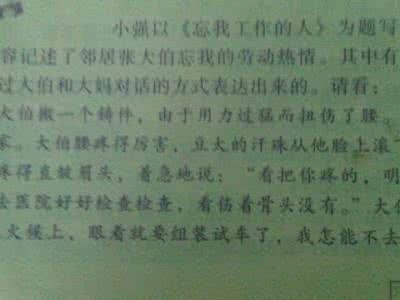 小强以《忘我工作的人》为题写
容记述了邻居张大伯忘我的劳动热情。其中有
过大伯和大妈对话的方式表达出来的。请看：
大伯搬一个铸件，由于用力过猛而扭伤了腰。
家。大伯腰疼得厉害，豆大的汗珠从他脸上滚
疼得直皱眉头，着急地说：“看把你疼的，明
去医院好好检查检查，看伤着骨头没有。”大伯
火候上，眼看就要组装试车了，我怎能不去